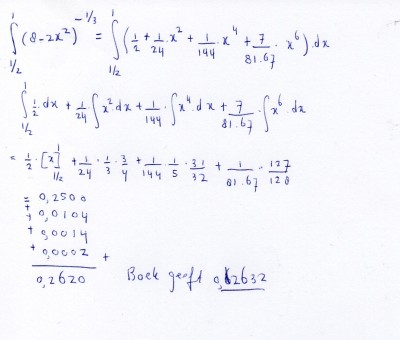 ∫_{1/2}^{1} (8-2x²)^{-1/3} = ∫_{1/2}^{1} (1/2 + 1/24 x² + 1/144 · x⁴ + 7/81.67 · x⁶) · dx
∫_{1/2}^{1} 1/2 dx + 1/24 ∫ x² dx + 1/144 · ∫ x⁴ · dx + 7/81.67 · ∫ x⁶ · dx
= 1/2 · [x]_{1/2}^{1} + 1/24 · 1/3 · 3/4 + 1/144 · 1/5 · 31/32 + 1/81.67 · 127/128
= 0,2500
+ 0,0104
+ 0,0014
+ 0,0002 +
0,2620 Boek geeft 0,2632